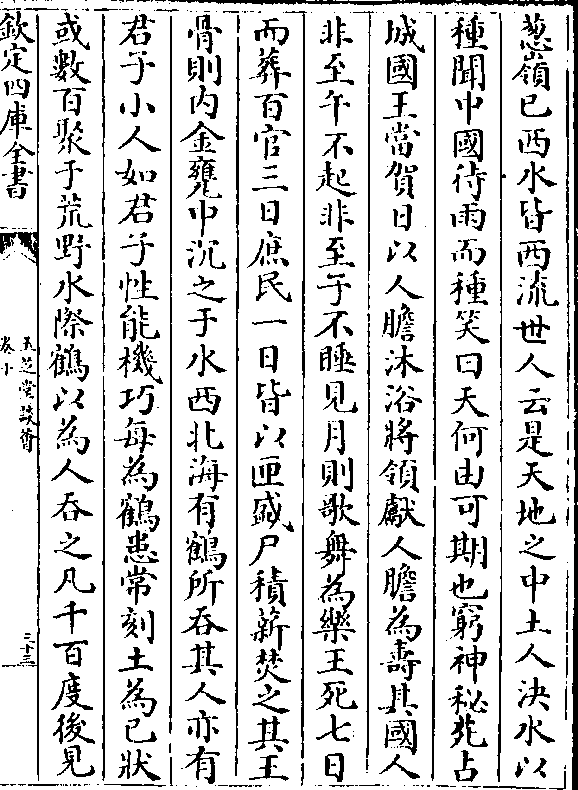 葱嶺已西水皆西流世人云是天地之中土人決水以
種聞中國待雨而種笑曰天何由可期也窮神秘苑占
城國王當賀日以人膽沐浴將領獻人膽為壽其國人
非至午不起非至子不睡見月則歌舞為樂王死七日
而葬百官三日庶民一日皆以匣盛尸積薪焚之其王
骨則内金甕中沉之于水西北海有鶴所吞其人亦有
君子小人如君子性能機巧每為鶴患常刻土為已狀
或數百聚于荒野水際鶴以為人吞之凡千百度後見
欽定四庫全書
玉芝堂談薈
卷十
三十三